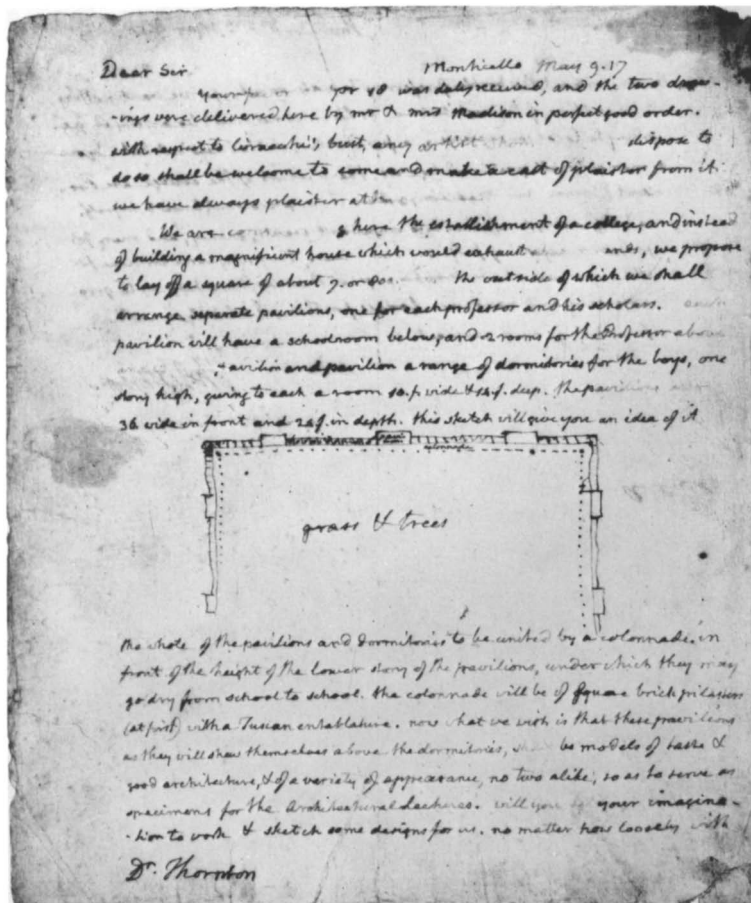 Dear Sir Monticello May 9. 17
Your of 18 was duly received, and the two draw-
-ings were delivered here by mr & mrs Madison in perfect good order.
with respect to Ciracchi's bust, any artist dispose to
do so shall be welcome to come and make a cast of plaister from it.
we have always plaister at
We are here the establishment of a college, and instead
of building a magnificent house which would exhaust, we propose
to lay off a square of about 7. or 800. the outside of which we shall
arrange separate pavilions, one for each professor and his scholars. each
pavilion will have a schoolroom below, and 2 rooms for the Professor above
pavilion and pavilion a range of dormitories for the boys, one
story high, giving to each a room 10. f. wide & 14. f. deep. the pavilions
36 wide in front and 24 f. in depth. this sketch will give you an idea of it
colonnade
grass & trees
the whole of the pavilions and dormitories to be united by a colonnade in
front of the height of the lower story of the pavilions, under which they may
go dry from school to school. the colonnade will be of square brick pilasters
(at first) with a Tuscan entablature. now what we wish is that these pavilions
as they will shew themselves above the dormitories, be models of taste &
good architecture, & of a variety of appearance, no two alike, so as to serve as
specimens for the Architectural Lectures. will you your imagina-
-tion to work & sketch some designs for us. no matter how loosely with
Dr. Thornton